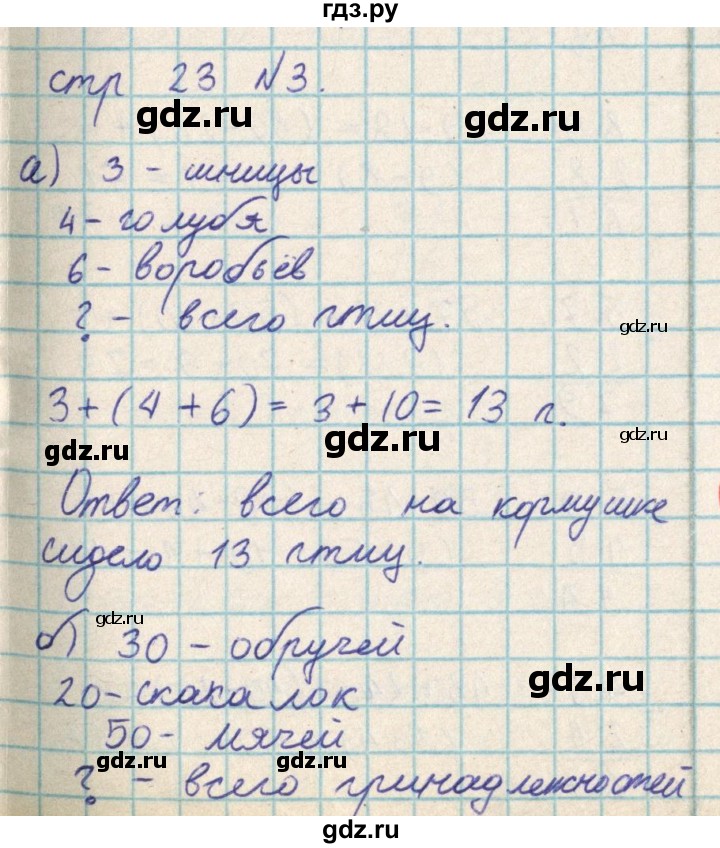 гдз.ру
стр 23 №3.
gdz.ru
gdz.ru
а) 3 - синицы
4 - голубя
6 - воробьёв
? - всего птиц.
gdz.ru
3 + (4 + 6) = 3 + 10 = 13 п.
gdz.ru
gdz.ru
gdz.ru
Ответ: всего на кормушке
сидело 13 птиц.
gdz.ru
б) 30 - обручей
gdz.ru
20 - скакалок
50 - мячей
gdz.ru
gdz.ru
? - всего принадлежностей
gdz.ru